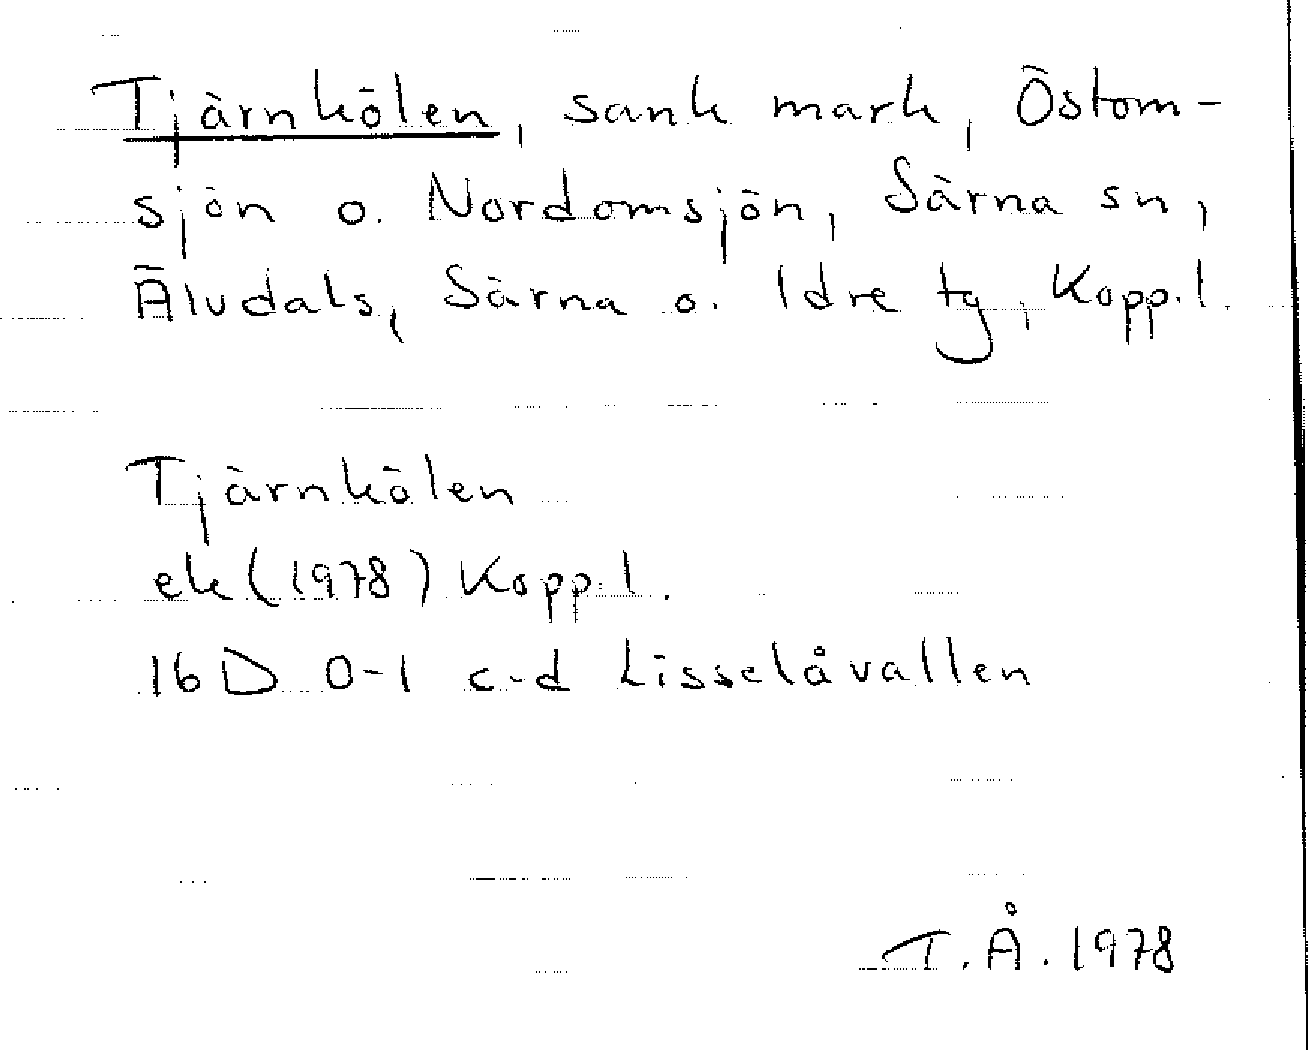 Tjärnkölen, sank mark, Östom-
sjön o. Nordomsjön, Särna sn,
Älvdals, Särna o. Idre tg, Kopp.l.
Tjärnkölen
ek (1978) Kopp.l.
16 D 0-1 c-d Lisselåvallen
T.Å. 1978